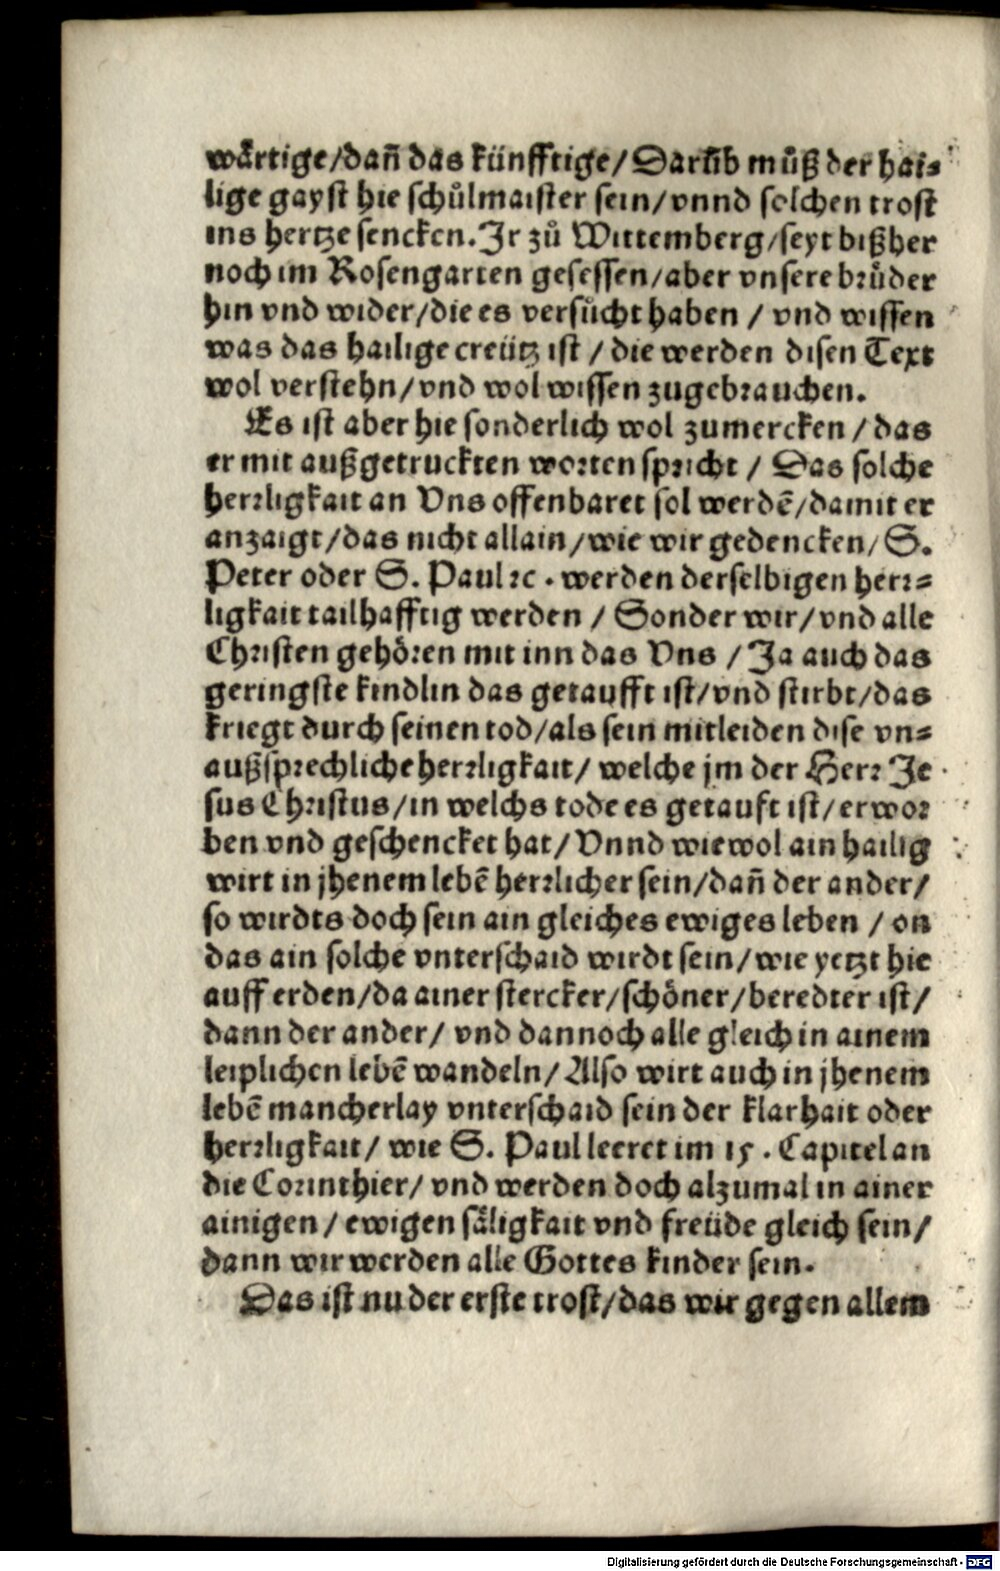 wårtige/dañ das künfftige/Darũb můß der hai⸗
lige gayst hie schůlmaister sein/vnnd solchen trost
ins hertze sencken. Jr zů Wittemberg/seyt bißher
noch im Rosengarten gesessen/aber vnsere brůder
hin vnd wider/die es versůcht haben / vnd wissen
was das hailige creütz ist / die werden disen Text
wol verstehn/vnd wol wissen zugebrauchen.
Es ist aber hie sonderlich wol zumercken / das
er mit außgetruckten worten spricht / Das solche
herrligkait an Vns offenbaret sol werdẽ/damit er
anzaigt/das nicht allain/wie wir gedencken/ S.
Peter oder S. Paul ꝛc. werden derselbigen herr⸗
ligkait tailhafftig werden / Sonder wir/vnd alle
Christen gehören mit inn das Vns / Ja auch das
geringste kindlin das getaufft ist/vnd stirbt/das
kriegt durch seinen tod/als sein mitleiden dise vn⸗
außsprechliche herrligkait/ welche jm der Herr Je
sus Christus/in welchs tode es getauft ist/erwor
ben vnd geschencket hat/ Vnnd wiewol ain hailig
wirt in jhenem lebẽ herrlicher sein/dañ der ander/
so wirdts doch sein ain gleiches ewiges leben / on
das ain solche vnterschaid wirdt sein/wie yetzt hie
auff erden/da ainer stercker/schöner/beredter ist/
dann der ander/ vnd dannoch alle gleich in ainem
leiplichen lebẽ wandeln/ Also wirt auch in jhenem
lebẽ mancherlay vnterschaid sein der klarhait oder
herrligkait/ wie S. Paul leeret im 15. Capitel an
die Corinthier/ vnd werden doch alzumal in ainer
ainigen / ewigen såligkait vnd freüde gleich sein/
dann wir werden alle Gottes kinder sein.
Das ist nu der erste trost/das wir gegen allem
Digitalisierung gefördert durch die Deutsche Forschungsgemeinschaft - DFG